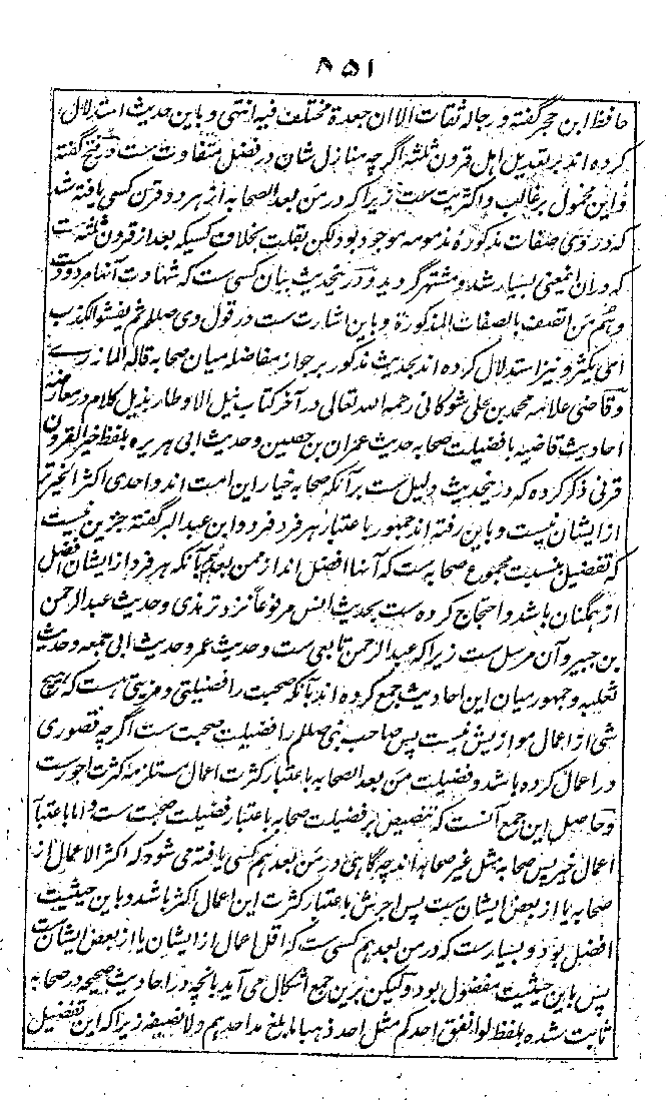 ۸۵۱
حافظ ابن حجر گفته و رجاله ثقات الا ان جعدة مختلف فیه انتهی و باین حدیث استدلال
کرده اند بر تعدیل اهل قرون ثلثه اگرچه منازل شان در فضل متفاوت ست در فتح گفته
و این محمول بر غالب و اکثریت ست زیرا که در من بعد الصحابه از هر دو قرن کسی یافته شد
که در وی صفات مذکوره مذمومه موجود بود لیکن بقلت بخلاف کسیکه بعد از قرون ثلثه ست
که دران اینمعنی بسیار شد و مشتهر گردید و درینحدیث بیان کسی ست که شهادت آنها مردود ست
وهم من اتصف بالصفات المذکورة و باین اشارت ست در قول وی صللم ثم یفشو الکذب
ای یکثر و نیز استدلال کرده اند بحدیث مذکور بر جواز مفاضله میان صحابه قاله المازری
و قاضی علامه محمد بن علی شوکانی رحمه الله تعالی در آخر کتاب نیل الاوطار بذیل کلام در معارضه
احادیث قاضیه بافضیلت صحابه حدیث عمران بن حصین و حدیث ابی هریره بلفظ خیر القرون
قرنی ذکر کرده که درینحدیث دلیل ست برآنکه صحابه خیار این امت اند و احدی اکثر الخیرتر
از ایشان نیست و باین رفته اند جمهور باعتبار هر فرد فرد و ابن عبد البر گفته جزین نیست
که تفضیل بنسبت مجموع صحابه ست که آنها افضل اند از من بعدهم نه آنکه هر فرد از ایشان افضل
از همگنان باشد و احتجاج کرده ست بحدیث انس مرفوعا نزد ترمذی و حدیث عبد الرحمن
بن جبیر و آن مرسل ست زیرا که عبد الرحمن تابعی ست و حدیث عمر و حدیث ابی جمعه و حدیث
ثعلبه و جمهور میان این احادیث جمع کرده اند بآنکه صحبت را فضیلتی و مزیتی هست که هیچ
شی از اعمال موازیش نیست پس صاحب نبی صللم را فضیلت صحبت ست اگرچه قصوری
در اعمال کرده باشد و فضیلت من بعد الصحابه باعتبار کثرت اعمال مستلزمه کثرت اجور ست
و حاصل این جمع آنست که تنصیص بر فضیلت صحابه باعتبار فضیلت صحبت ست و اما باعتبار
اعمال خیر پس صحابه مثل غیر صحابه اند چه گاهی در من بعدهم کسی یافته می شود که اکثر الاعمال از
صحابه یا از بعض ایشان ست پس اجرش باعتبار کثرت این اعمال اکثر باشد و باین حیثیت
افضل بود و بسیار ست که در من بعدهم کسی ست که اقل اعمال از ایشان یا از بعض ایشان ست
پس باین حیثیت مفضول بود ولیکن برین جمع اشکال می آید بانچه در احادیث صحیحه در صحابه
ثابت شده بلفظ لو انفق احدکم مثل احد ذهبا ما بلغ مد احدهم ولا نصیفه زیرا که این تفضیل